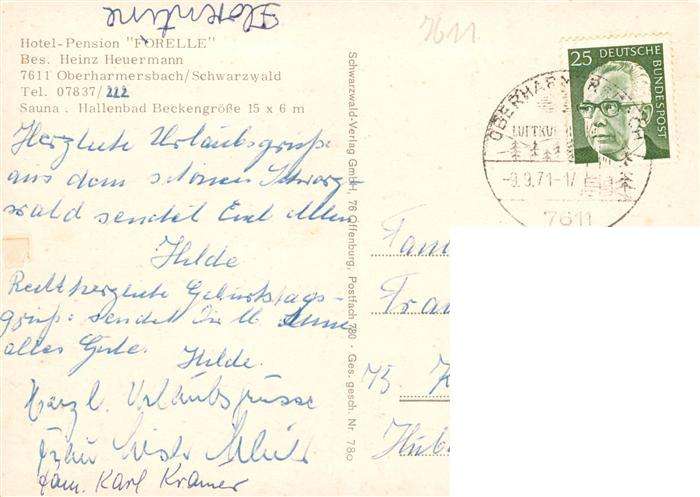 Florentine
7611
Hotel-Pension "FORELLE"
Bes. Heinz Heuermann
7611 Oberharmersbach/Schwarzwald
Tel. 07837/222
Sauna . Hallenbad Beckengröße 15 x 6 m
Herzliche Urlaubsgrüße
aus dem schönen Schwarz
wald sendet Euch Allen
Hilde
Recht herzliche Geburtstags-
grüße sendet Dir
alles Gute. Hilde.
Herzl. Urlaubsgrüsse
Frau
Fam. Karl Kramer
Schwarzwald-Verlag GmbH, 76 Offenburg, Postfach 780 · Ges. gesch. Nr. 780
25 DEUTSCHE BUNDESPOST
OBERHARMERSBACH
LUFTKUR
-9.9.71-17
7611
Fam
Frau
75 K
Hub